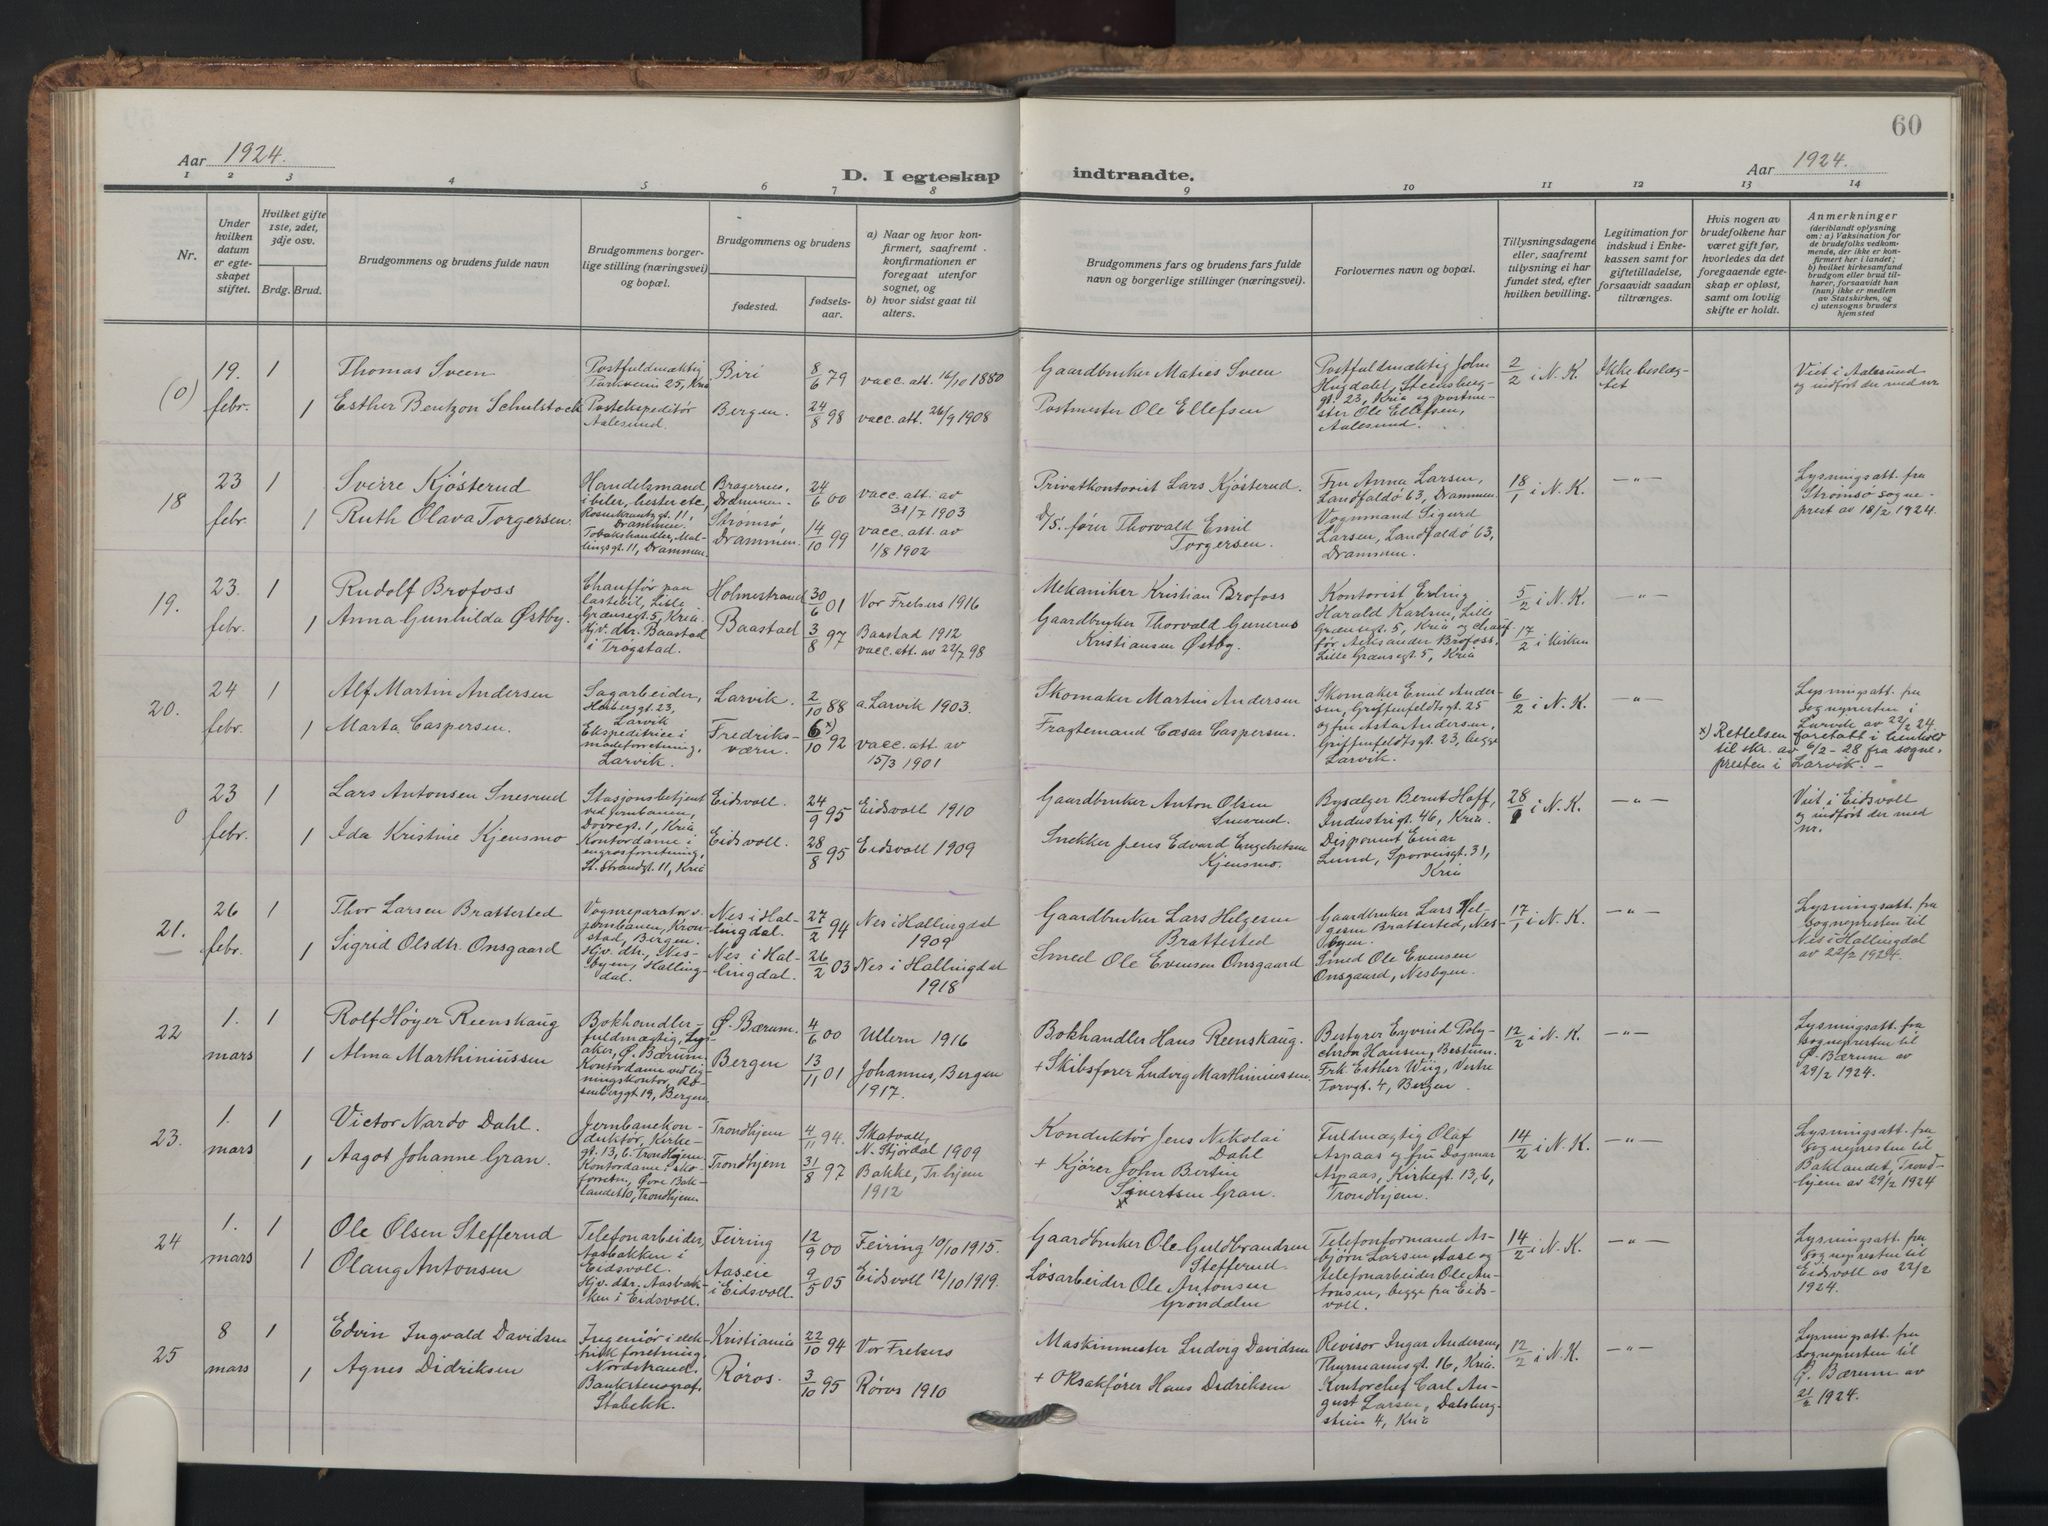 60
Aar 1924.
D. I egteskap indtraadte.
Aar 1924.
1 2 3 4 5 6 7 8 9 10 11 12 13 14
Nr.
Under hvilken datum er egteskapet stiftet.
Hvilket gifte 1ste, 2det, 3dje osv.
Brdg. Brud.
Brudgommens og brudens fulde navn
Brudgommens borgerlige stilling (næringsvei) og bopæl.
Brudgommens og brudens
fødested.
fødselsaar.
a) Naar og hvor konfirmert, saafremt konfirmationen er foregaat utenfor sognet, og
b) hvor sidst gaat til alters.
Brudgommens fars og brudens fars fulde navn og borgerlige stillinger (næringsvei).
Forlovernes navn og bopæl.
Tillysningsdagene eller, saafremt tillysning ei har fundet sted, efter hvilken bevilling.
Legitimation for indskud i Enkekassen samt for giftetilladelse, forsaavidt saadan tiltrænges.
Hvis nogen av brudefolkene har været gift før, hvorledes da det foregaaende egteskap er opløst, samt om lovlig skifte er holdt.
Anmerkninger
(deriblandt oplysning om: a) Vaksination for de brudefolks vedkommende, der ikke er konfirmert her i landet; b) hvilket kirkesamfund brudgom eller brud tilhører, forsaavidt han (hun) ikke er medlem av Statskirken, og c) utensogns bruders hjemsted
(0) 19. febr. 1
Thomas Sveen
Postfuldmægtig
Parkveien 25, Kria
Biri
8/6 79
vacc. att. 16/10 1880
Gaardbruker Maties Sveen
Postfuldmægtig John
Hugdalet, Steensberg-
gt. 23, Kria og postme-
ster Ole Ellefsen,
Aalesund.
2/2 i N. K.
Ikke beslæg-
tet
Viet i Aalesund
og indført der med nr.
1
Esther Bentzon Schulstock
Postekspeditør
Aalesund.
Bergen.
24/8 98
vacc. att. 26/9 1908
Postmester Ole Ellefsen
18 23 febr. 1
Sverre Kjøsterud
Handelsmand
i biler, hester etc,
Rosenkrantzgt. 11,
Drammen.
Bragernes,
Drammen.
24/6 00
vacc. att. av
31/7 1903
Privatkontorist Lars Kjøsterud.
Fru Anna Larsen,
Landfaldø 63, Drammen.
Vognmand Sigurd
Larsen, Landfaldø 63,
Drammen.
18/1 i N. K.
—"—
Lysningsatt. fra
Strømsø sogne-
prest av 18/2 1924.
1
Ruth Olava Torgersen.
Tobakshandler, Mal-
lingsgt. 11, Drammen.
Strømsø,
Drammen.
14/10 99
vacc. att. av
1/8 1902
D/S. fører Thorvald Emil
Torgersen.
19. 23. febr. 1
Rudolf Brofoss
Chauffør paa
lastebil, Lille
Grænsegt. 5, Kria.
Holmestrand
30/6 01
Vor Frelsers 1916
Mekaniker Kristian Brofoss
Kontorist Erling
Harald Karlsen, Lille
Grænsegt. 5, Kria og chauf-
før Aleksander Brofoss,
Lille Grænsegt. 5, Kria
5/2 i N. K.
17/2 i Kirken
—"—
1
Anna Gunhilda Østby.
Hjv. dtr. Baastad
i Trøgstad.
Baastad
3/8 97
Baastad 1912
vacc. att. av 22/7 98
Gaardbruker Thorvald Gunerus
Kristiansen Østby.
20. 24 febr. 1
Alf Martin Andersen
Sagarbeider,
Herbergt. 23,
Larvik
Larvik.
2/10 88
a. Larvik 1903.
Skomaker Martin Andersen
Skomaker Emil Ander-
sen, Griffenfeldtsgt. 25
og fru Asta Andersen,
Griffenfeldtsgt. 23, begge
Larvik.
6/2 i N. K.
—"—
Lysningsatt. fra
sognepresten i
Larvik av 22/2 24.
1
Marta Caspersen.
Ekspeditrice i
modeforretning,
Larvik.
Fredriks-
værn.
6x)/10 92
vacc. att. av
15/3 1901
Fragtemand Cæsar Caspersen.
x) Rettelsen foretatt i henhold
til skr. av 6/2-28 fra sogne-
presten i Larvik. —
0 23 febr. 1
Lars Antonsen Snesrud
Stasjonsbetjent
ved jernbanen,
Dovregt. 1, Kria
Eidsvoll.
24/9 95
Eidsvoll 1910
Gaardbruker Anton Olsen
Snesrud.
Bysælger Bernt Hoff,
Industrigt. 46, Kria.
Disponent Einar
Lund, Sporveisgt. 31,
Kria
28/1 i N. K.
—"—
Viet i Eidsvoll
og indført der med
nr.
1
Ida Kristine Kjensmo
Kontordame i
engrosforretning,
St. Strandgt. 11, Kria
Eidsvoll.
28/8 95
Eidsvoll 1909
Snekker Jens Edvard Engebretsen
Kjensmo.
21. 26 febr. 1
Thor Larsen Brattested
Vognreparatør v.
jernbanen, Kron-
stad, Bergen.
Nes i Hal-
lingdal.
27/2 94
Nes i Hallingdal
1909
Gaardbruker Lars Helgesen
Brattested
Gaardbruker Lars Hel-
gesen Brattested, Nes-
byen.
Smed Ole Evensen
Onsgaard, Nesbyen.
17/1 i N. K.
—"—
Lysningsatt. fra
Sognepresten til
Nes i Hallingdal
av 22/2 1924.
1
Sigrid Olsdtr. Onsgaard
Hjv. dtr., Nes-
byen, Halling-
dal.
Nes i Hal-
lingdal.
26/2 03
Nes i Hallingdal
1918
Smed Ole Evensen Onsgaard
22 1. mars 1
Rolf Høyer Reenskaug
Bokhandler-
fuldmægtig, Lys-
aker, Ø. Bærum.
Ø. Bærum.
4/6 00
Ullern 1916
Bokhandler Hans Reenskaug.
Bestyrer Eyvind Poly-
chron Hansen, Bestum.
Frk. Esther Wiig, Vestre
Torvgt. 4, Bergen.
12/2 i N. K.
—"—
Lysningsatt. fra
sognepresten til
Ø. Bærum av
29/2 1924.
1
Alma Marthiniussen
Kontordame ved lig-
ningskontor, Ro-
senberggt 19, Bergen.
Bergen
13/11 01
Johannes, Bergen
1917.
+ Skibsfører Ludvig Marthiniussen.
23. 1. mars 1
Victor Nardo Dahl.
Jernbanekon-
duktør, Kirke-
gt. 13, 6. Trondhjem.
Trondhjem
4/11 94.
Skatvoll,
N. Stjørdal 1909
Konduktør Jens Nikolai
Dahl
Fuldmægtig Olaf
Aspaas og fru Dagmar
Aspaas, Kirkegt. 13, 6,
Trondhjem.
14/2 i N. K.
—"—
Lysningsatt. fra
sognepresten til
Baklandet, Trond-
hjem av 29/2 1924
1
Aagot Johanne Gran.
Kontordame i sko-
forretn., Øvre Bak-
landet 10, Trondhjem.
Trondhjem
31/8 97
Bakke, Tr.hjem
1912
+ Kjører John Bersin
Sivertsen Gran.
24 1. mars 1
Ole Olsen Stefferud
Telefonarbeider,
Aasbakken i
Eidsvoll.
Feiring
12/9 00
Feiring 10/10 1915.
Gaardbruker Ole Guldbrandsen
Stefferud
Telefonformand As-
bjørn Larsen Aase og
telefonarbeider Ole An-
tonsen, begge fra Eids-
voll.
14/2 i N. K.
—"—
Lysningsatt. fra
sognepresten til
Eidsvoll av 22/2
1924.
1
Olaug Antonsen
Hjv. dtr. Aasbak-
ken i Eidsvoll.
Aaseie
i Eidsvoll.
9/5 05
Eidsvoll 12/10 1919.
Løsarbeider Ole Antonsen
Grøndalen
25 8 mars 1
Edvin Ingvald Davidsen
Ingeniør i elek-
trisk forretning,
Nordstrand.
Kristiania
22/10 94
Vor Frelsers
Maskinmester Ludvig Davidsen
Revisor Ingar Andersen,
Thurmannsgt. 16, Kria.
Kontorchef Carl Au-
gust Larsen, Dalsberg-
stien 4, Kria
12/2 i N. K.
—"—
Lysningsatt. fra
sognepresten til
Ø. Bærum av
21/2 1924.
1
Agnes Didriksen
Bankstenograf,
Stabekk.
Røros.
3/10 95
Røros 1910
+ Oksakfører Hans Didriksen